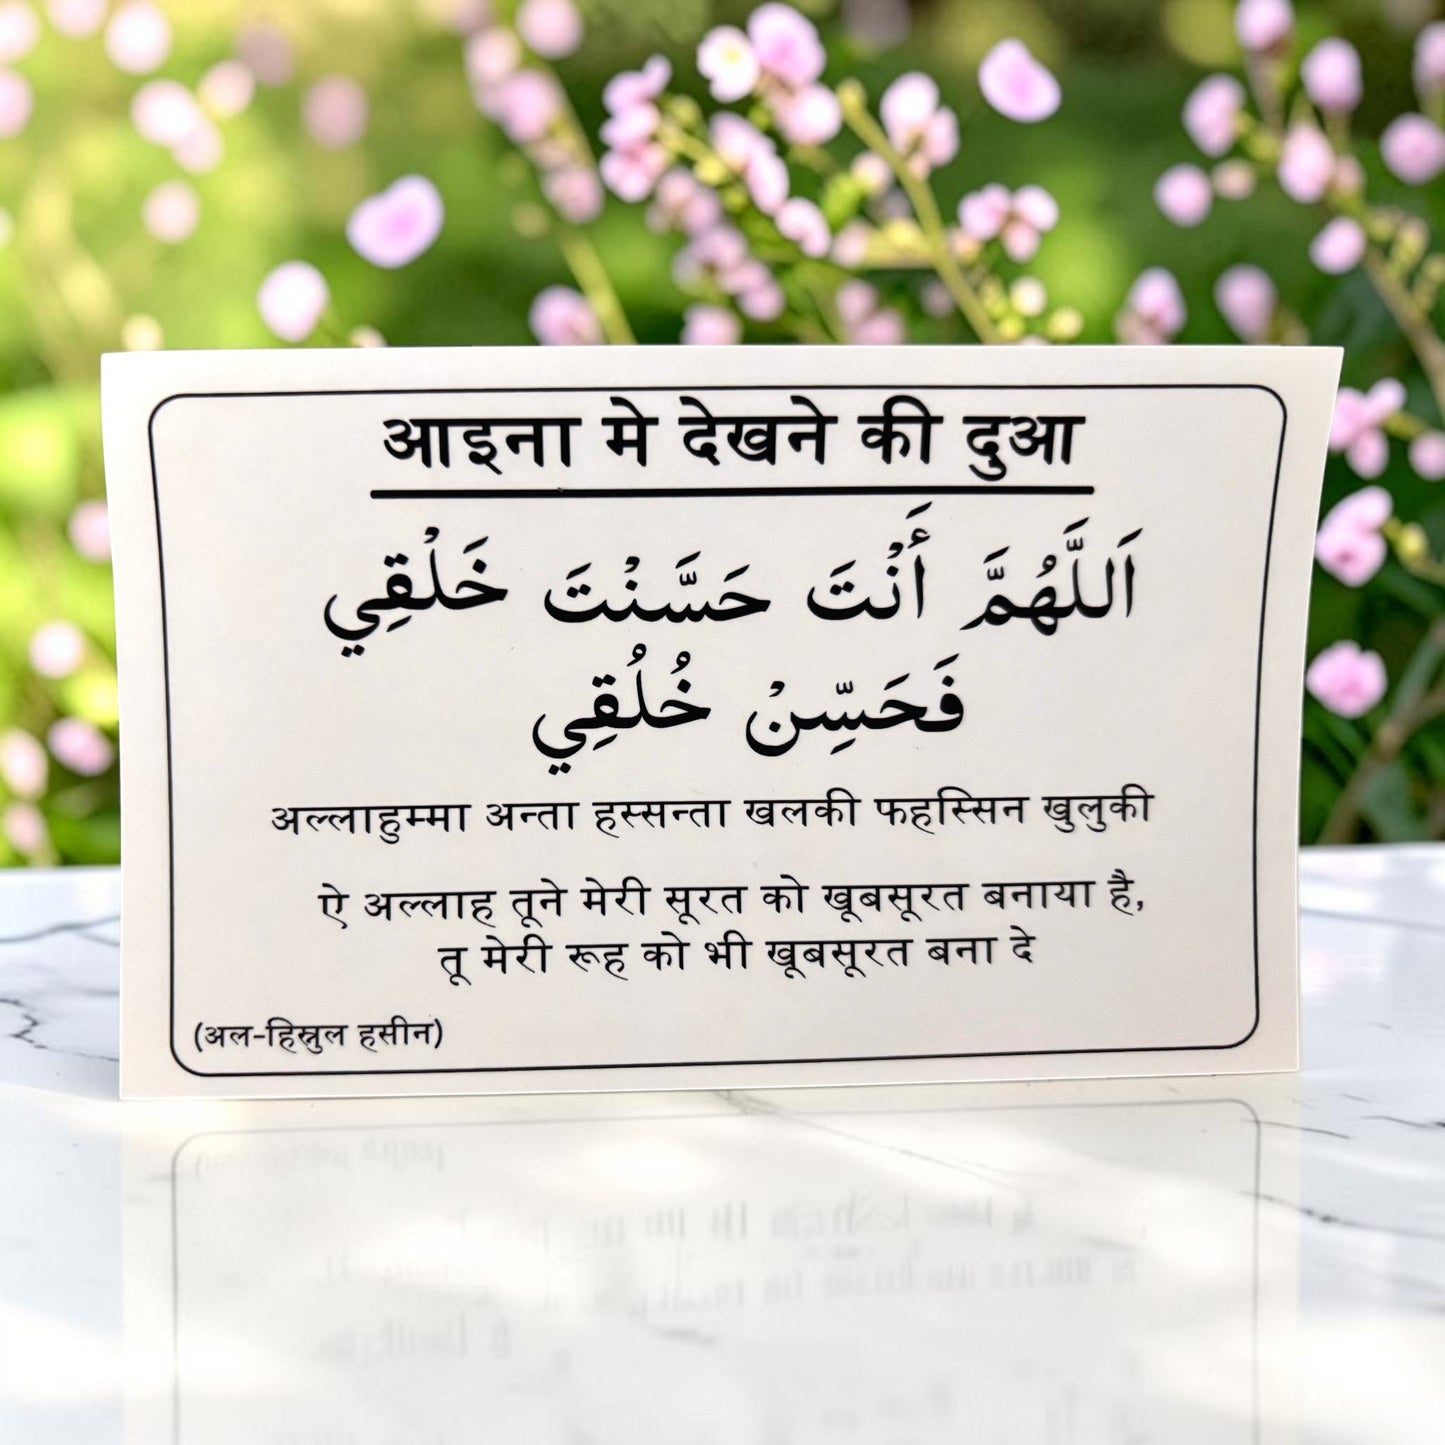 आइना मे देखने की दुआ
اَللّٰهُمَّ أَنْتَ حَسَّنْتَ خَلْقِي
فَحَسِّنْ خُلُقِي
अल्लाहुम्मा अन्ता हस्सन्ता खलकी फहस्सिन खुलुकी
ऐ अल्लाह तूने मेरी सूरत को खूबसूरत बनाया है,
तू मेरी रूह को भी खूबसूरत बना दे
(अल-हिस्नुल हसीन)